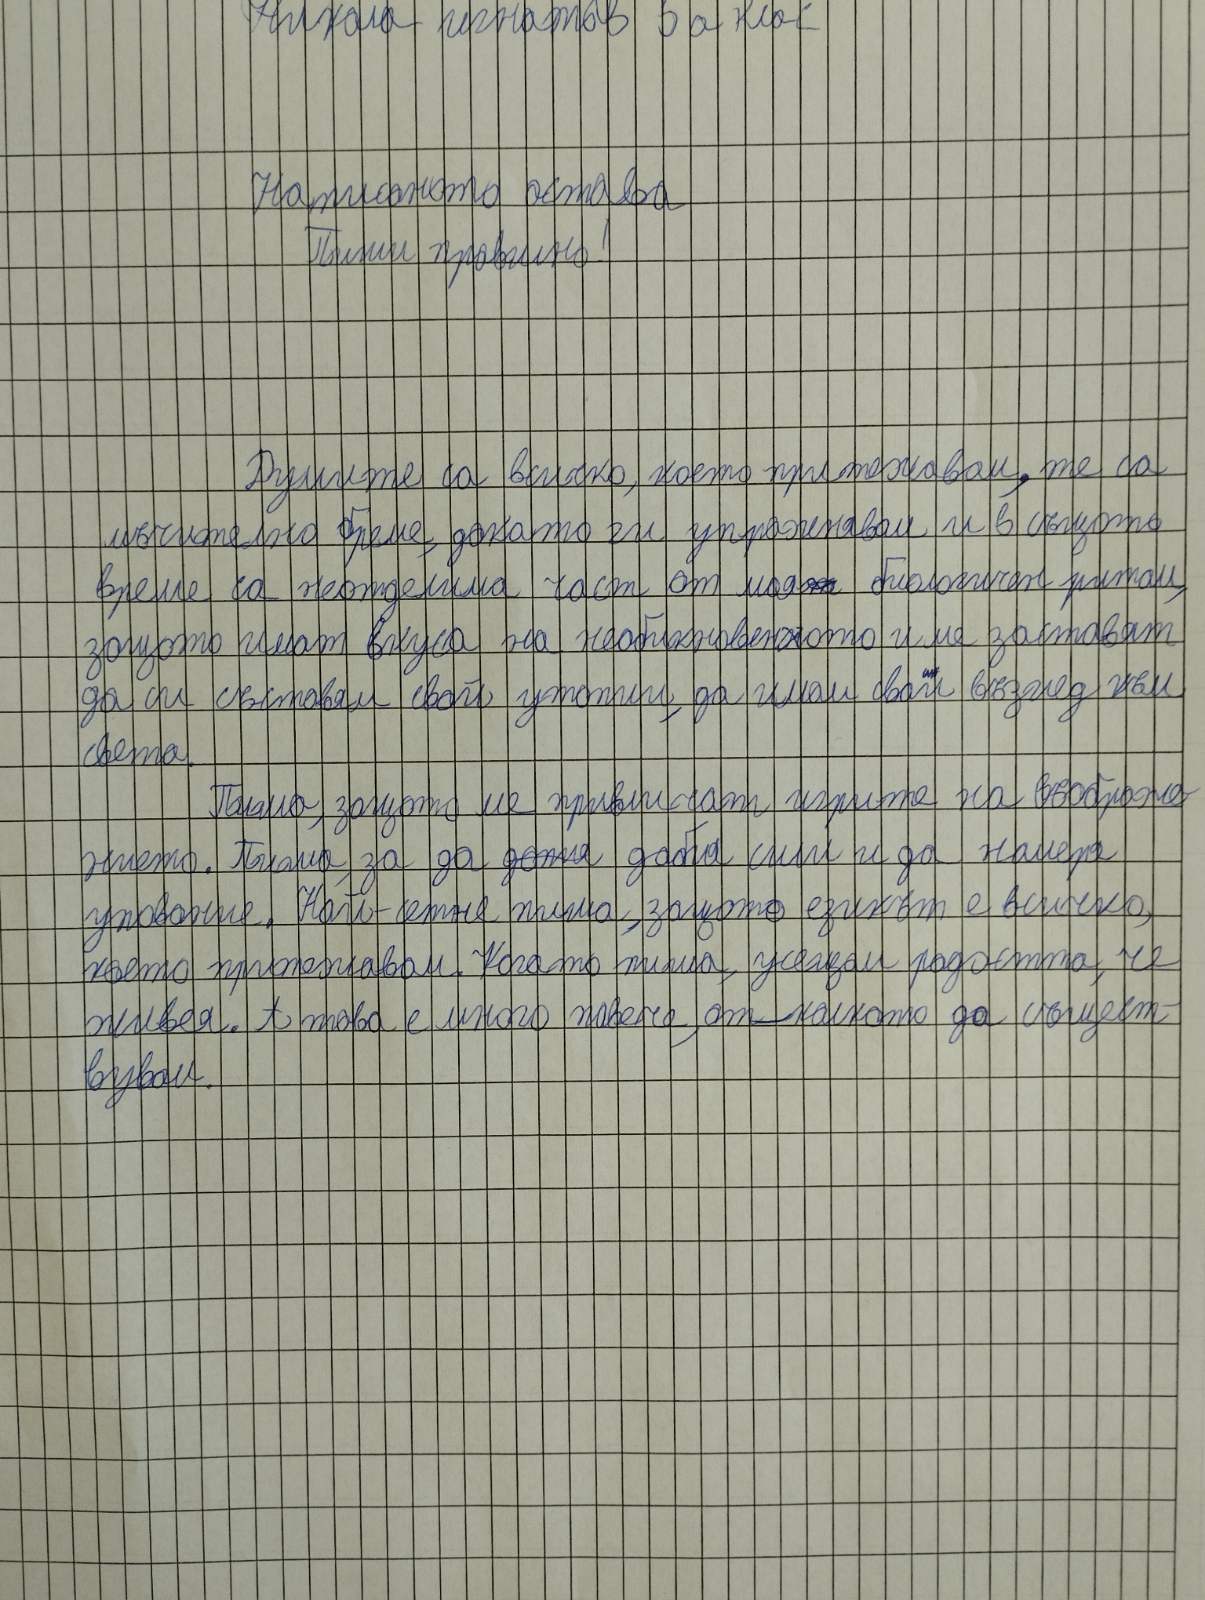 Никола Игнатов 5 а клас
Написаното остава
Пиши правилно!
Думите са всичко, което притежавам, те са
мъчително бреме, докато ги упражнявам и в същото
време са неотделима част от моя биологичен ритъм,
защото имат вкуса на необикновеното и ме заставят
да си съставям свои утопии, да имам свой възглед към
света.
Пиша, защото ме привличат игрите на въображе-
нието. Пиша, за да добия сили и да намеря
упование. Най-сетне пиша, защото езикът е всичко,
което притежавам. Когато пиша, усещам радостта, че
живея. А това е много повече, от колкото да същест-
вувам.